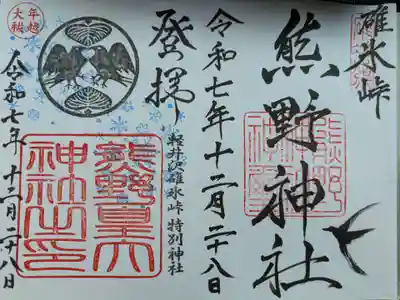 碓氷峠
熊野神社
熊野神社
令和七年十二月二十八日
登拝
軽井沢碓氷峠 特別神社
年越
大祓
熊野皇大
神社之印
令和七年 十二月二十八日